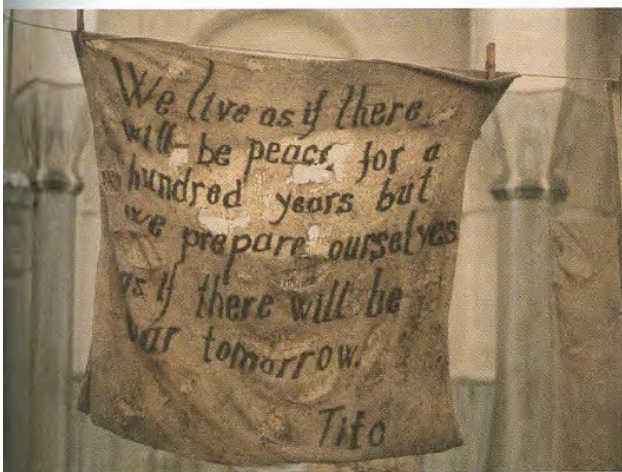 We live as if there
will be peace for a
hundred years but
we prepare ourselves
as if there will be
war tomorrow.
Tito